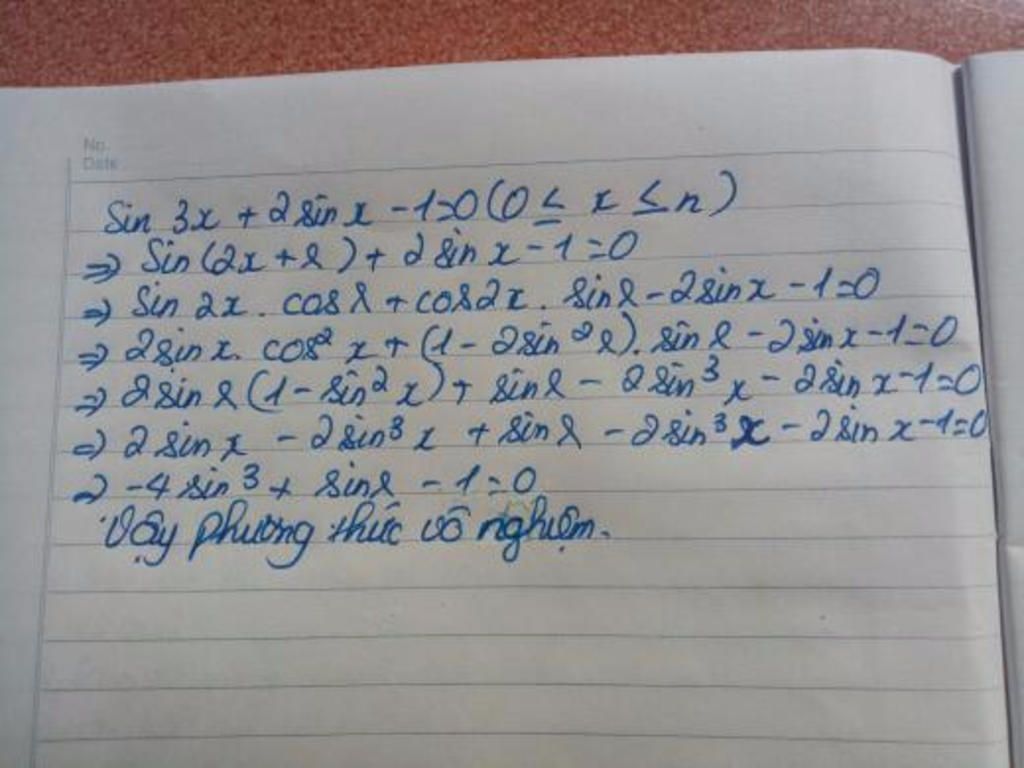 No.
Date
Sin 3x + 2sin x - 1=0 (0 ≤ x ≤ π)
=> Sin(2x + x) + 2 sin x - 1 = 0
=> Sin 2x . cos x + cos 2x . sin x - 2sin x - 1 = 0
=> 2sin x. cos² x + (1 - 2sin² x). sin x - 2sin x - 1 = 0
=> 2sin x (1 - sin² x) + sin x - 2sin³ x - 2sin x - 1 = 0
=> 2 sin x - 2sin³ x + sin x - 2sin³ x - 2sin x - 1 = 0
=> -4 sin³ + sin x - 1 = 0
Vậy phương thức vô nghiệm.